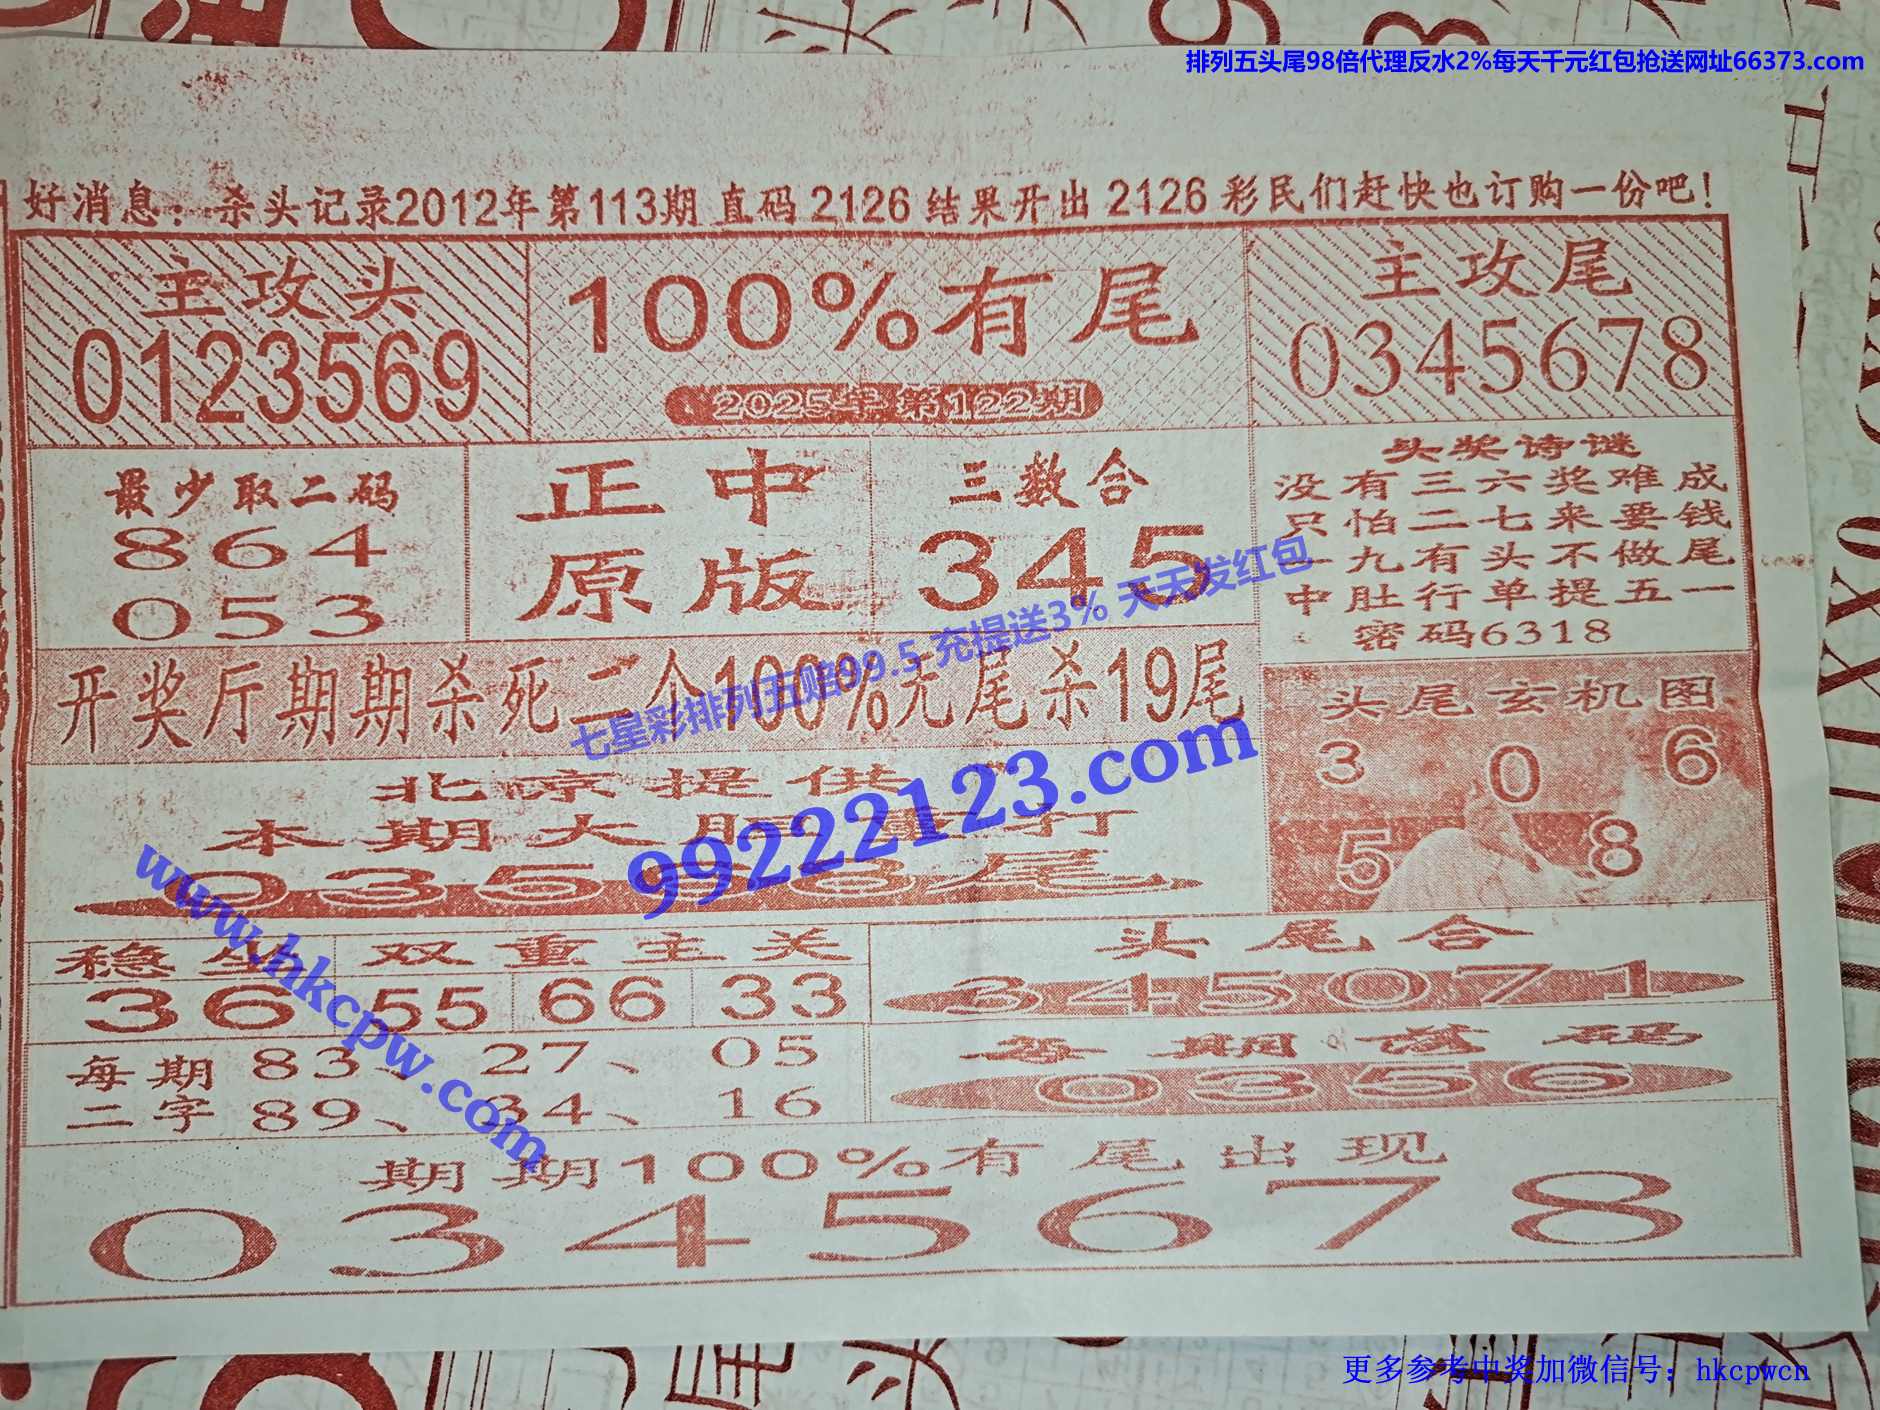 排列五头尾98倍代理反水2%每天千元红包抢送网址66373.com
好消息：杀头记录2012年第113期 直码 2126 结果开出 2126 彩民们赶快也订购一份吧！
主攻头
0123569
100%有尾
2025年第122期
主攻尾
0345678
最少取二码
864
053
正中
原版
三数合
345
头奖诗谜
没有三六奖难成
只怕二七来要钱
一九有头不做尾
中肚行单提五一
密码6318
七星彩排列五赔99.5 充提送3% 天天发红包
开奖厅期期杀死二个100%无尾杀19尾
头尾玄机图
3 0 6
5 8
99222123.com
北京提供
本期大胆重打
尾
www.hkcpw.com
稳坐
36
双重主关
55 66 33
头尾合
345071
每期 83、27、05
二字 89、34、16
每期试码
0356
期期100%有尾出现
0345678
更多参考中奖加微信号：hkcpwcn